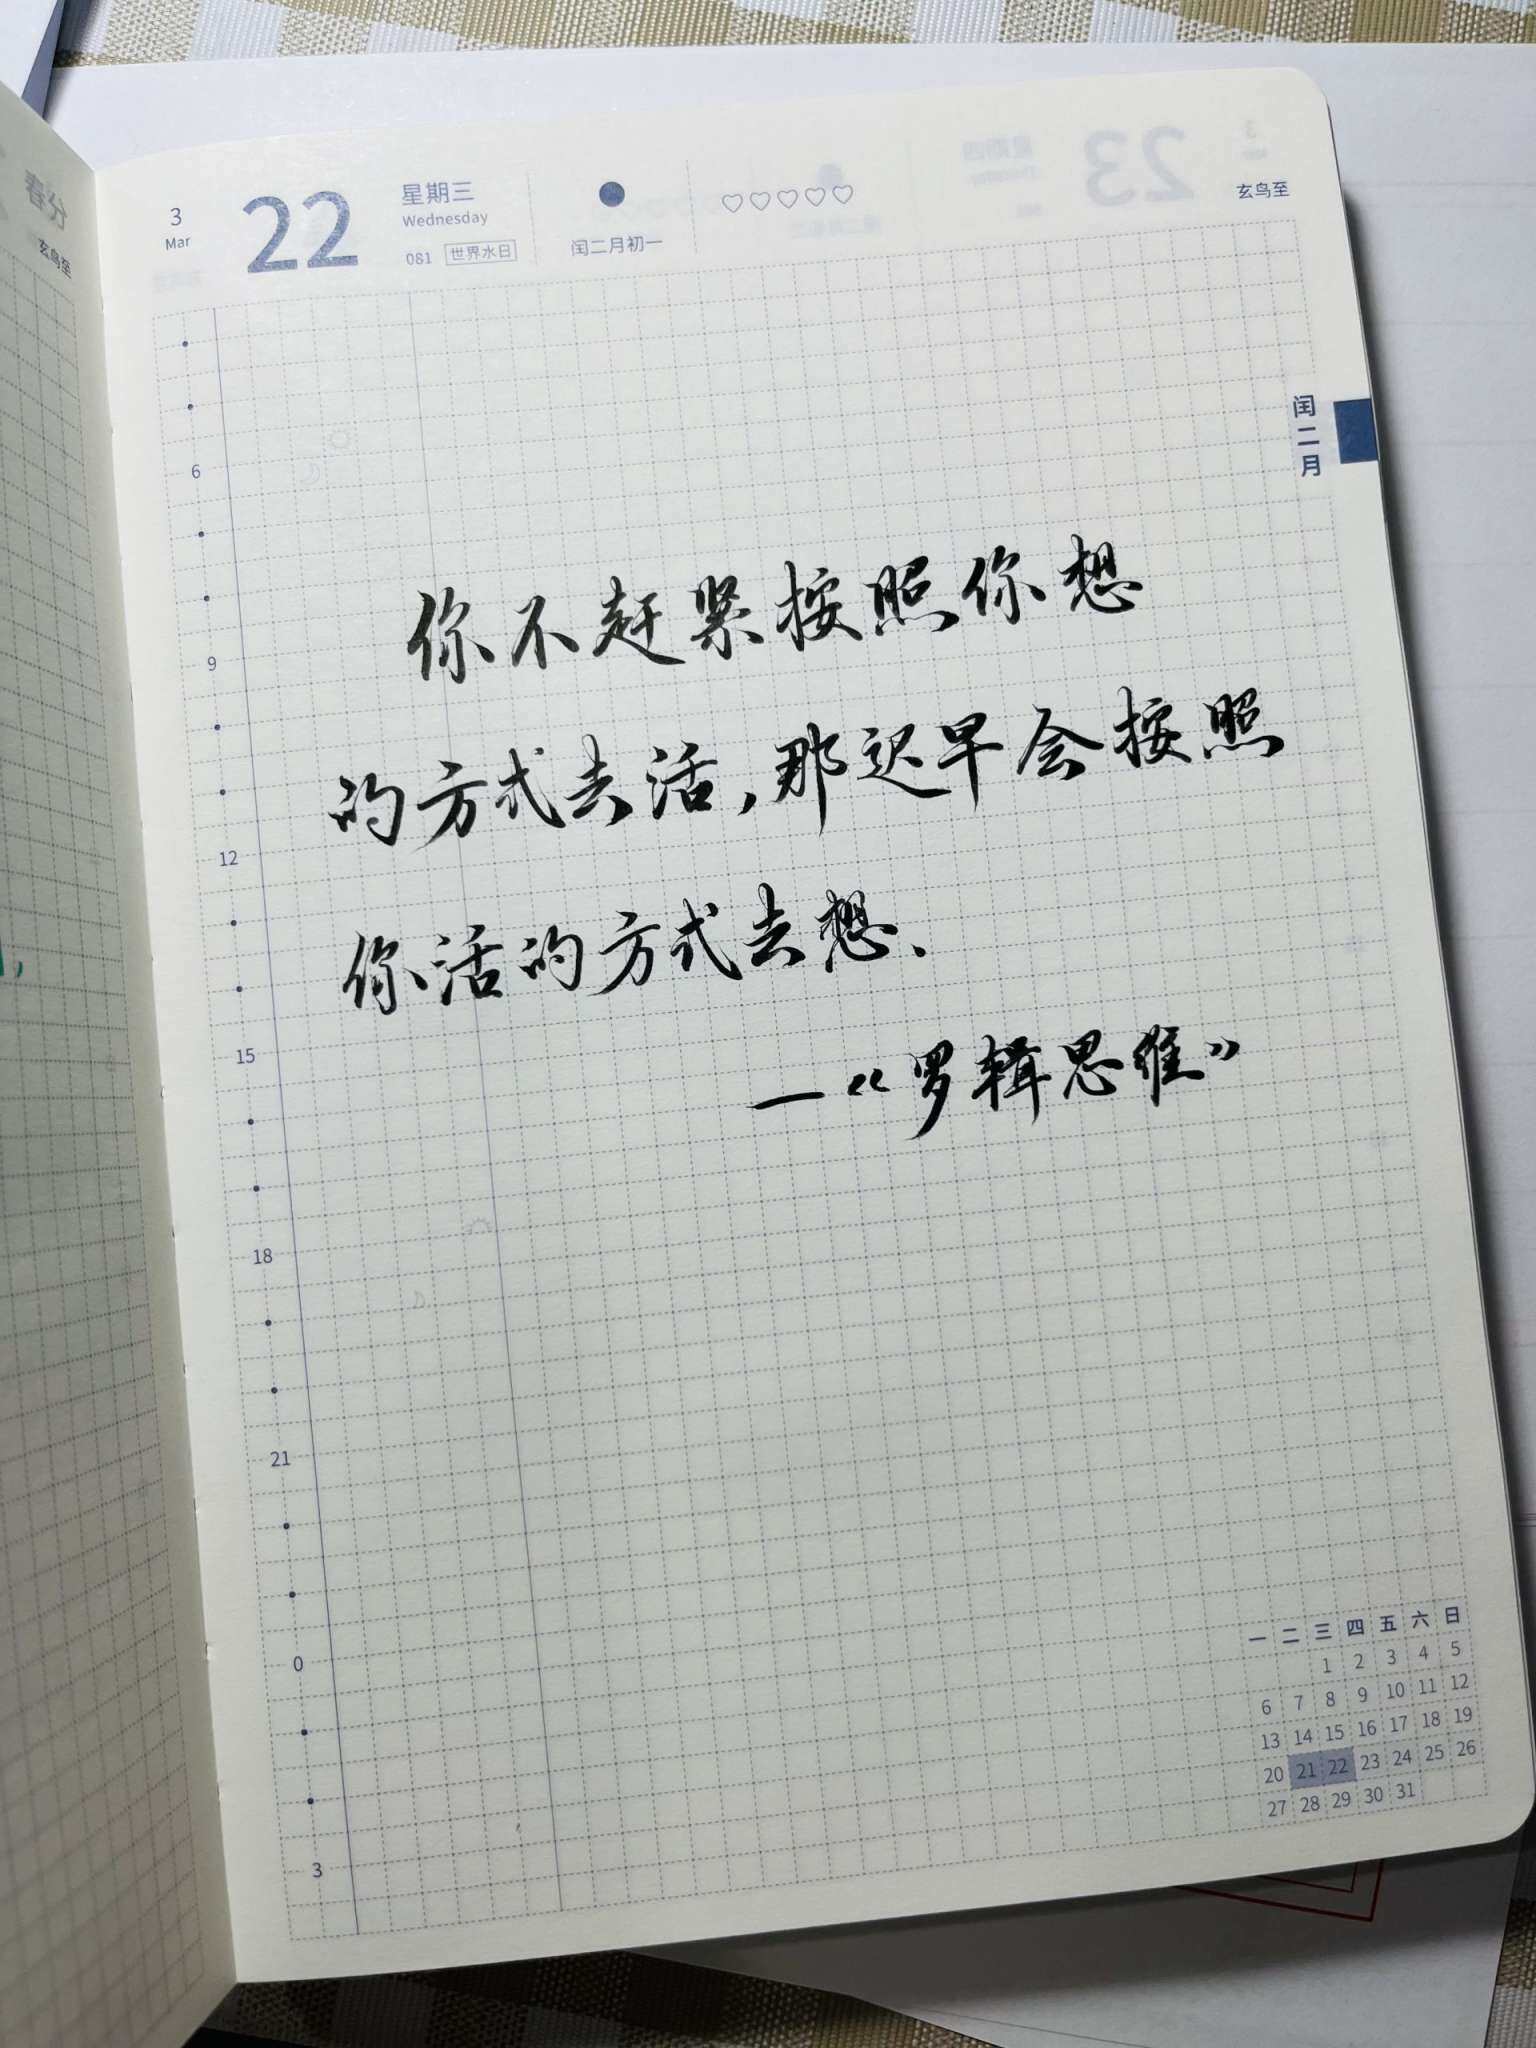 春分
玄鸟至
3
Mar
22
星期三
Wednesday
081 世界水日
闰二月初一
玄鸟至
闰二月
6
9
12
15
18
21
0
3
你不赶紧按照你想
的方式去活,那迟早会按照
你活的方式去想.
—《罗辑思维》
一 二 三 四 五 六 日
1 2 3 4 5
6 7 8 9 10 11 12
13 14 15 16 17 18 19
20 21 22 23 24 25 26
27 28 29 30 31